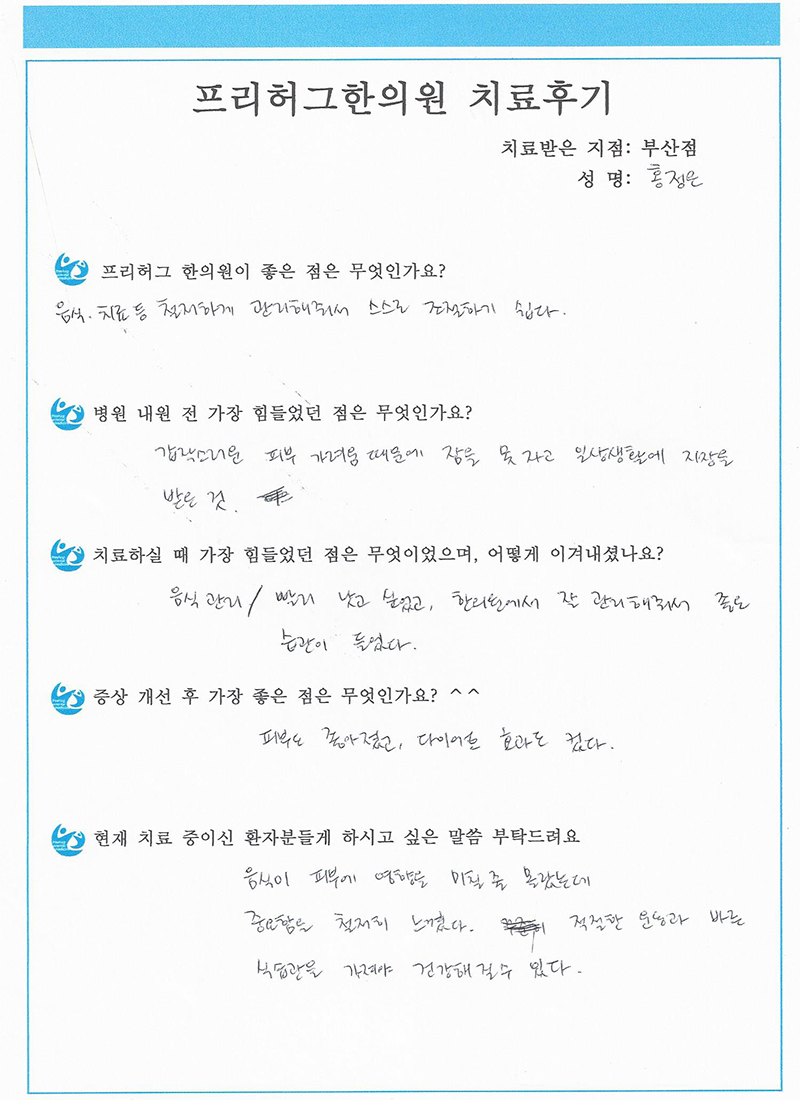 프리허그한의원 치료후기
치료받은 지점: 부산점
성 명: 홍정은
프리허그 한의원이 좋은 점은 무엇인가요?
음식. 치료등 철저하게 관리해줘서 스스로 조절하기 쉽다.
병원 내원 전 가장 힘들었던 점은 무엇인가요?
갑작스러운 피부 가려움 때문에 잠을 못 자고 일상생활에 지장을
받은 것.
치료하실 때 가장 힘들었던 점은 무엇이었으며, 어떻게 이겨내셨나요?
음식 관리 / 빨리 낫고 싶었고, 한의원에서 잘 관리해줘서 좋은
습관이 들었다.
증상 개선 후 가장 좋은 점은 무엇인가요? ^^
피부도 좋아졌고, 다이어트 효과도 컸다.
현재 치료 중이신 환자분들게 하시고 싶은 말씀 부탁드려요
음식이 피부에 영향을 미칠 줄 몰랐는데
중요함을 철저히 느꼈다. 적절한 운동과 바른
식습관을 가져야 건강해질수 있다.